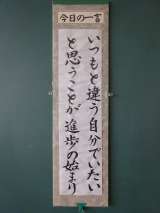 今日の一言
いつもと違う自分でいたい
と思うことが進歩の始まり